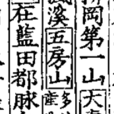 岡第一山
溪五房山多産
在藍田都脉